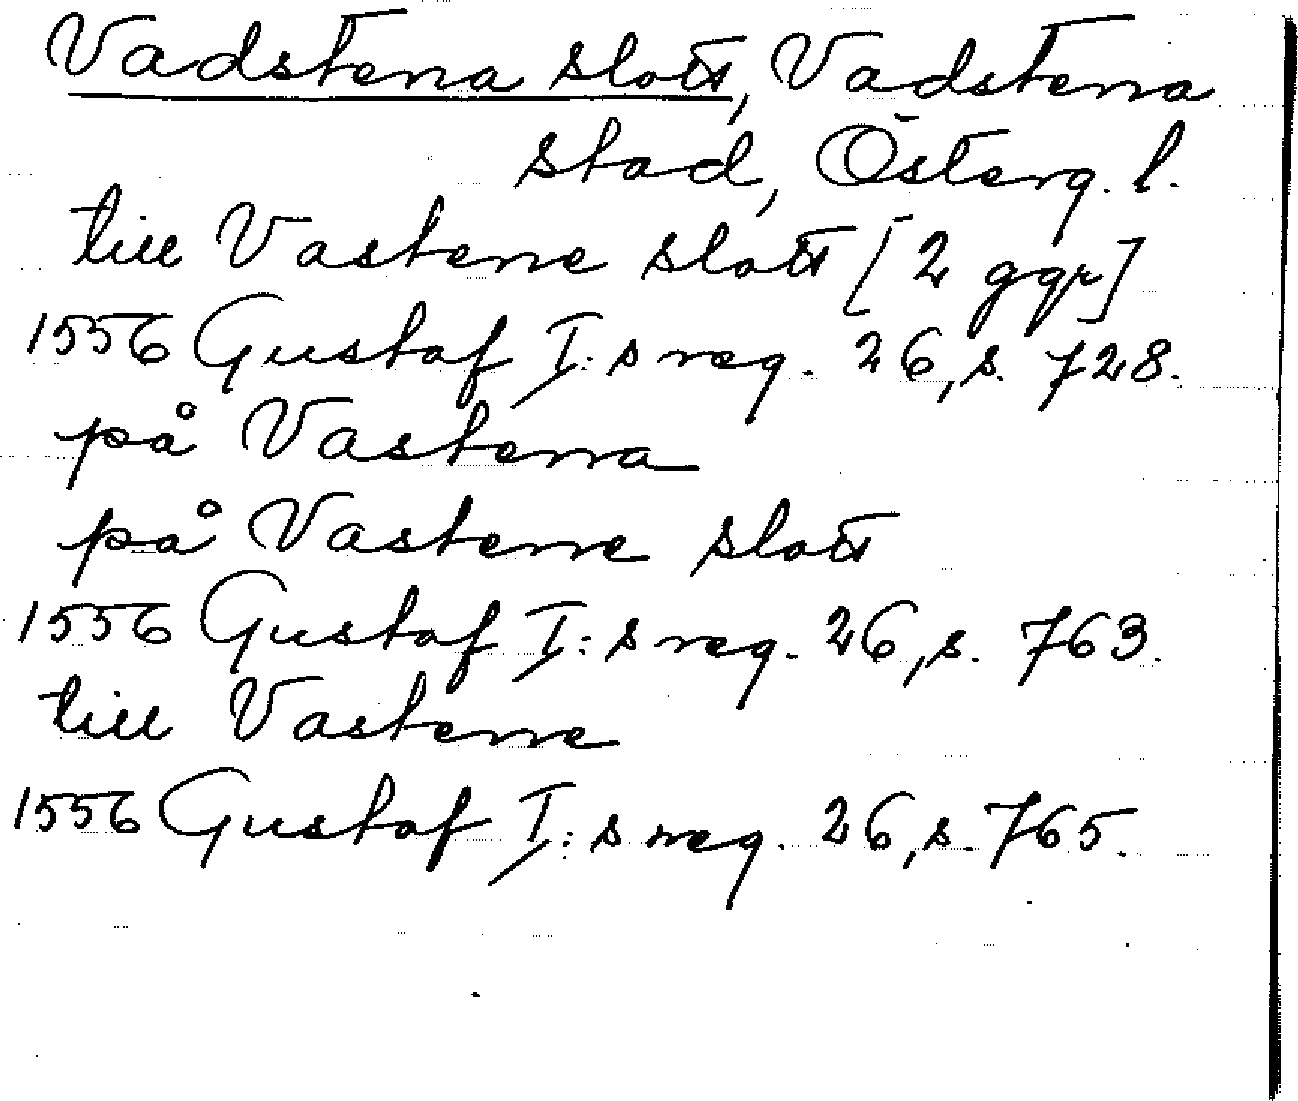 Vadstena slott, Vadstena
stad, Österg. l.
till Vastene slott [2 ggr]
1556 Gustaf I:s reg. 26, s. 728.
på Vastena
på Vastene slott
1556 Gustaf I:s reg. 26, s. 763.
till Vastene
1556 Gustaf I:s reg. 26, s. 765.